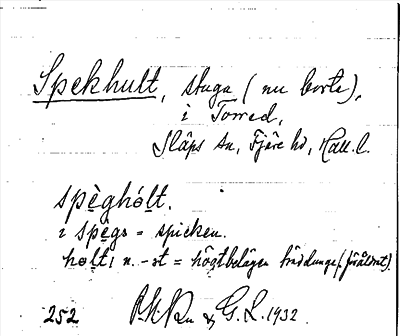 Spekhult, stuga (nu borta),
i Torred,
Släps sn, Fjäre hd, Hall. l.
spèghó̱lt.
i spègs = spicken.
holt; n. -et = högtbelägen (föråldrat).
252 & G. L. 1932.